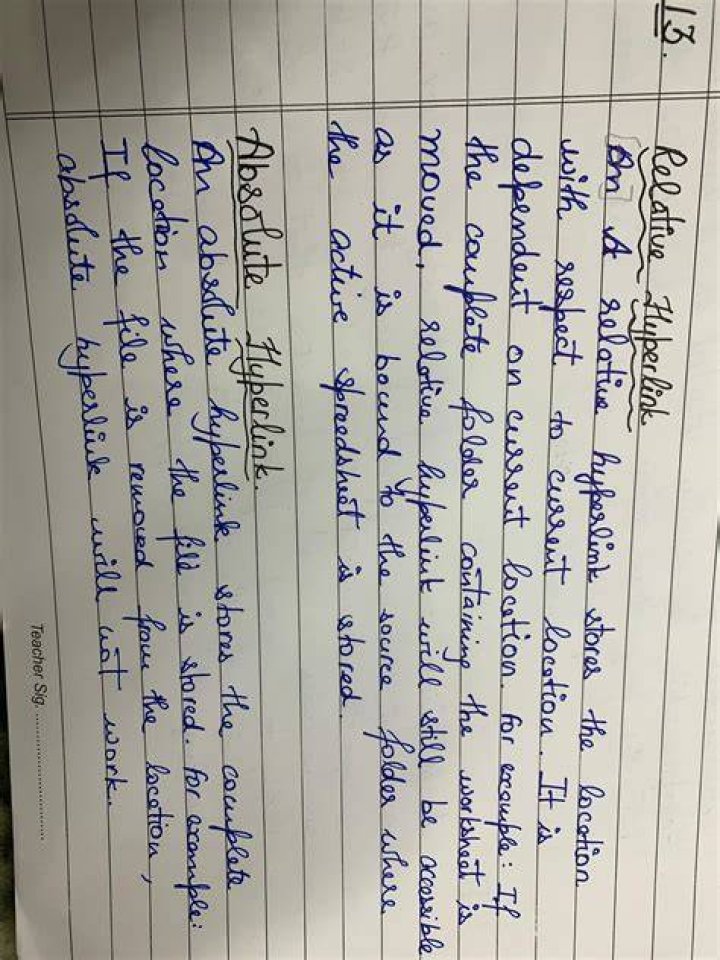 13.
Relative Hyperlink
[An] A relative hyperlink stores the location
with respect to current location. It is
dependent on current location. for example: If
the complete folder containing the worksheet is
moved, relative hyperlink will still be accessible
as it is bound to the source folder where
the active spreedsheet is stored.
Absolute Hyperlink.
An absolute hyperlink stores the complete
location where the file is stored. for example:
If the file is removed from the location,
absolute hyperlink will not work.
Teacher Sig. ........................